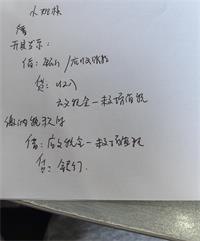 小规模
开具发票:
借:银行/应收账款
贷:收入
应交税金—增值税
缴纳税款时
借:应交税金—增值税
贷:银行.